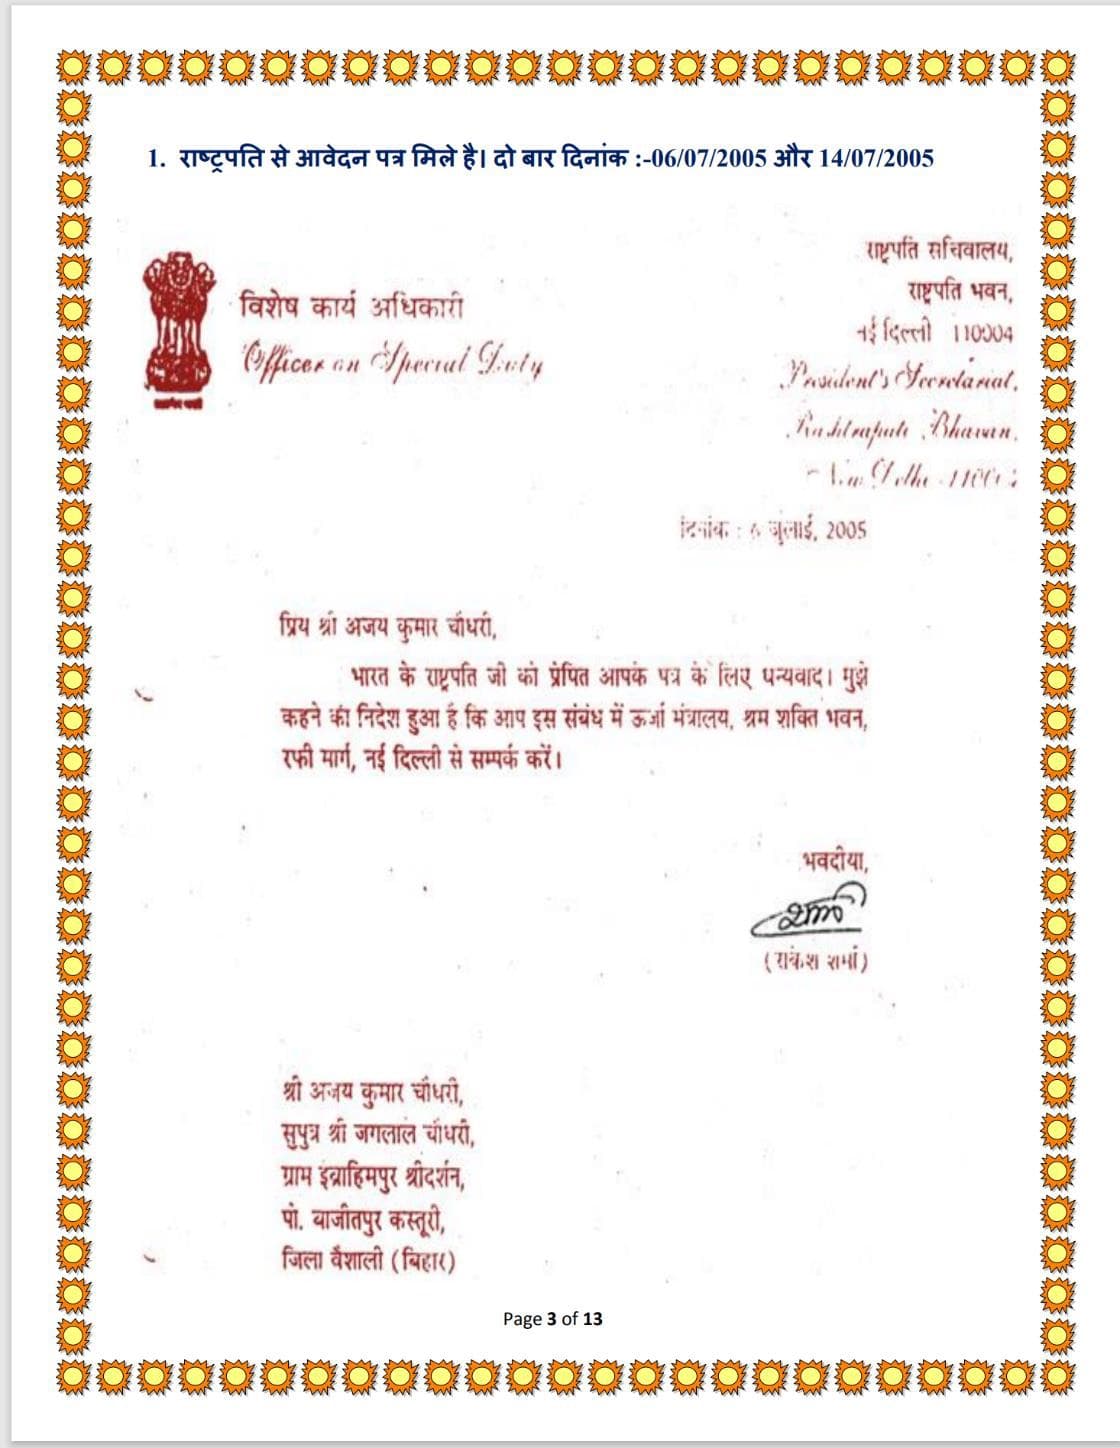 1. राष्ट्रपति से आवेदन पत्र मिले है। दो बार दिनांक :-06/07/2005 और 14/07/2005
राष्ट्रपति सचिवालय,
राष्ट्रपति भवन,
नई दिल्ली 110004
विशेष कार्य अधिकारी
Officer on Special Duty
President's Secretariat,
Rashtrapati Bhavan,
New Delhi
दिनांक : 6 जुलाई, 2005
प्रिय श्री अजय कुमार चौधरी,
भारत के राष्ट्रपति जी को प्रेषित आपके पत्र के लिए धन्यवाद। मुझे
कहने का निदेश हुआ है कि आप इस संबंध में ऊर्जा मंत्रालय, श्रम शक्ति भवन,
रफी मार्ग, नई दिल्ली से सम्पर्क करें।
भवदीया,
(राकेश शर्मा)
श्री अजय कुमार चौधरी,
सुपुत्र श्री जगलाल चौधरी,
ग्राम इब्राहिमपुर श्रीदर्शन,
पो. बाजीतपुर कस्तूरी,
जिला वैशाली (बिहार)
Page 3 of 13